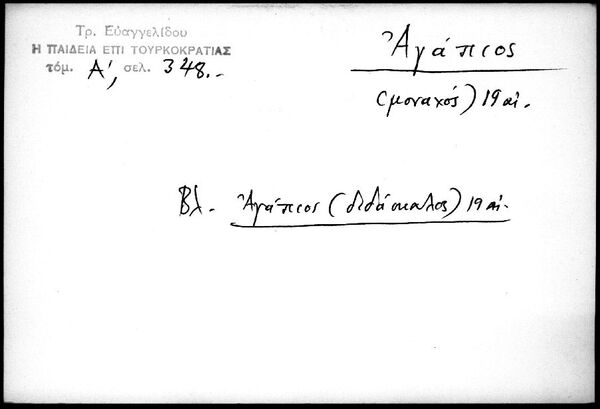 Τρ. Εὐαγγελίδου
Η ΠΑΙΔΕΙΑ ΕΠΙ ΤΟΥΡΚΟΚΡΑΤΙΑΣ
τόμ. Α', σελ. 348.-
Ἀγάπιος
(μοναχός) 19 αἰ.
Βλ. Ἀγάπιος (διδάσκαλος) 19 αἰ.